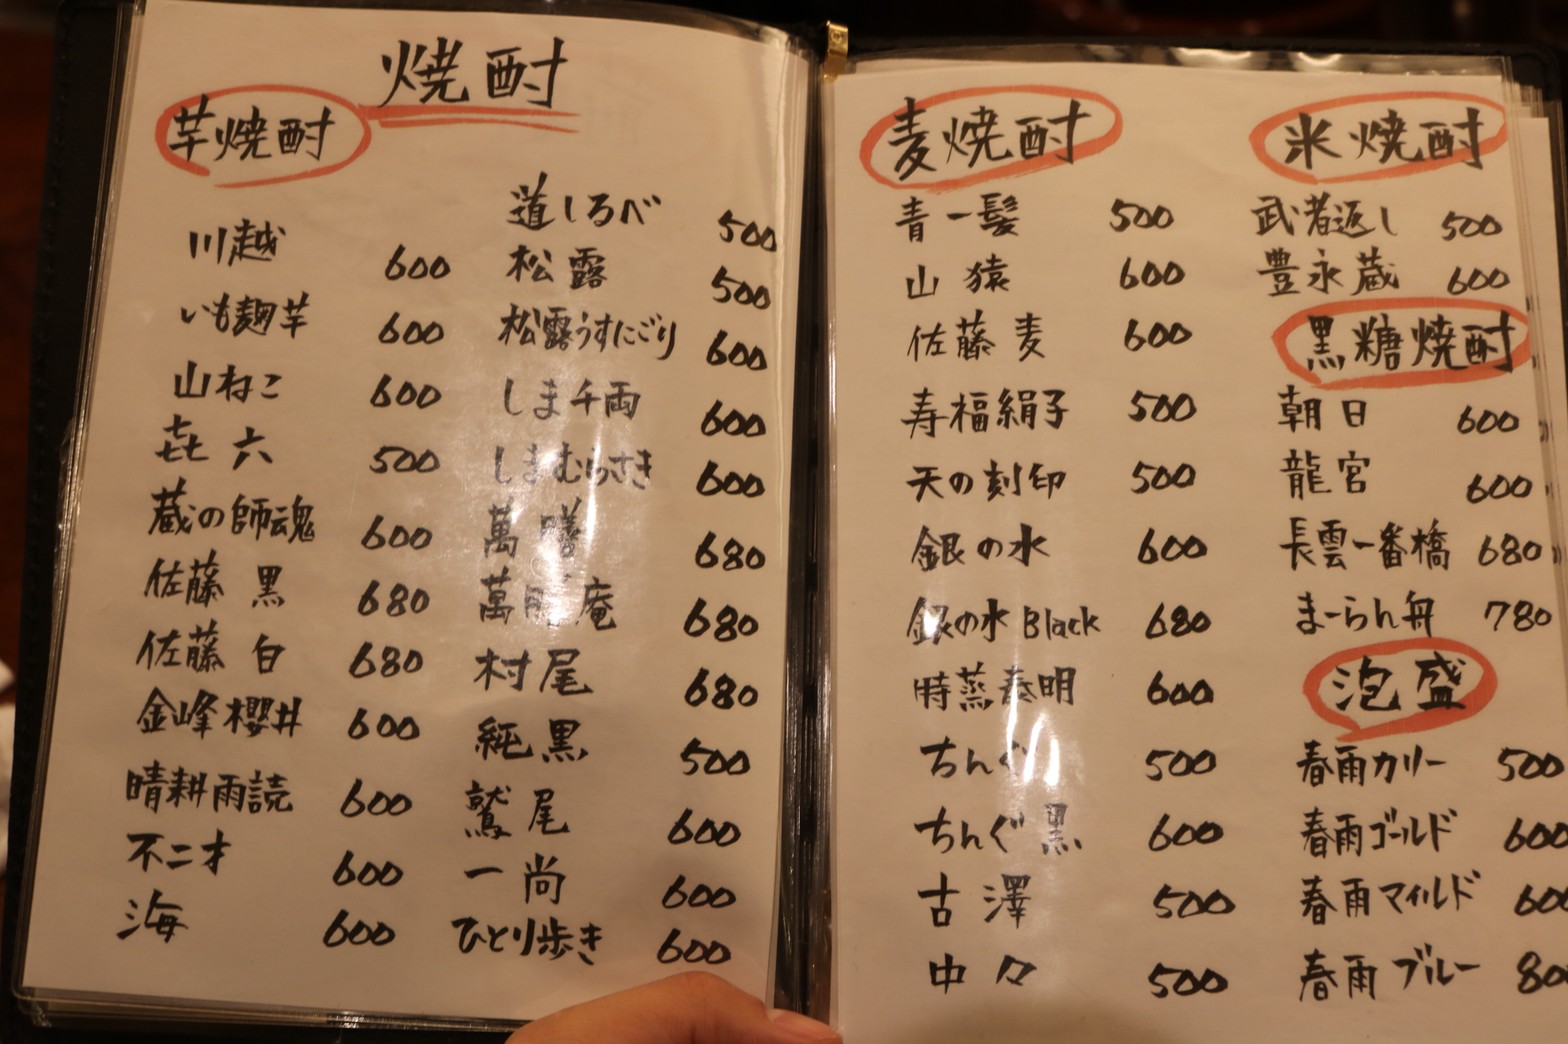 焼酎
芋焼酎
川越 600
いも麹芋 600
山ねこ 600
㐂六 500
蔵の師魂 600
佐藤 黒 680
佐藤 白 680
金峰櫻井 600
晴耕雨読 600
不二才 600
海 600
道しるべ 500
松露 500
松露うすにごり 600
しま千両 600
しまむらさき 600
萬膳 680
萬膳庵 680
村尾 680
純黒 500
鷲尾 600
一尚 600
ひとり歩き 600
麦焼酎
青一髪 500
山猿 600
佐藤 麦 600
寿福絹子 500
天の刻印 500
銀の水 600
銀の水 Black 680
特蒸泰明 600
ちんぐ 500
ちんぐ 黒 600
古澤 500
中々 500
米焼酎
武者返し 500
豊永蔵 600
黒糖焼酎
朝日 600
龍宮 600
長雲一番橋 680
まーらん舟 780
泡盛
春雨カリー 500
春雨ゴールド 600
春雨マイルド 600
春雨ブルー 80